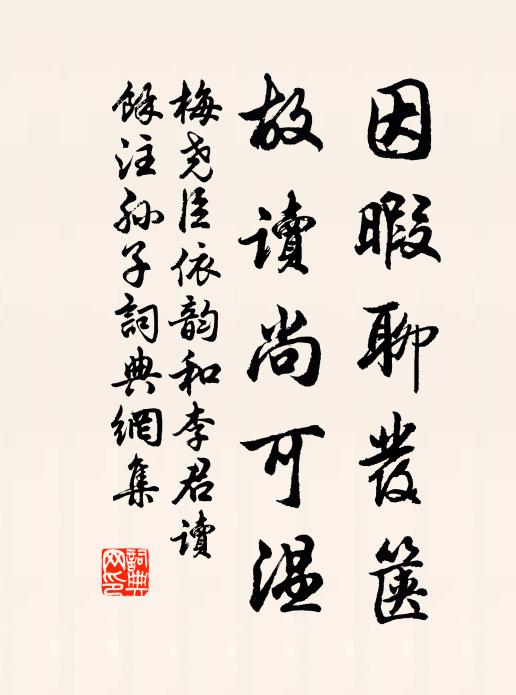 因暇聊發篋
故讀尚可溫
梅堯臣依韵和李君讀
餘注孫子詞典網集
詞典網印